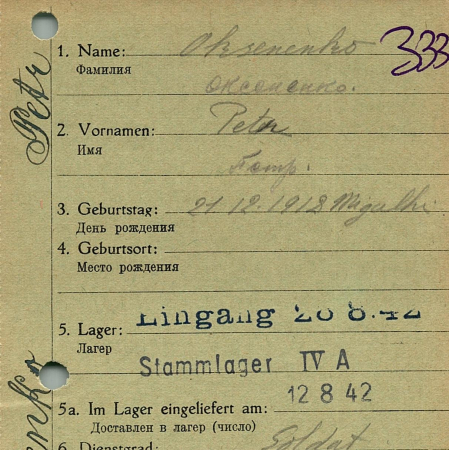 333
1. Name: Oksenenko
Фамилия
Оксененко.
2. Vornamen: Petr
Имя
Петр.
3. Geburtstag: 21.12.1918 Migalki
День рождения
4. Geburtsort:
Место рождения
Eingang 20 8.42
5. Lager:
Лагерь
Stammlager IV A
12 8 42
5a. Im Lager eingeliefert am:
Доставлен в лагерь (число)
6. Dienstgrad: Soldat
Petr
enko